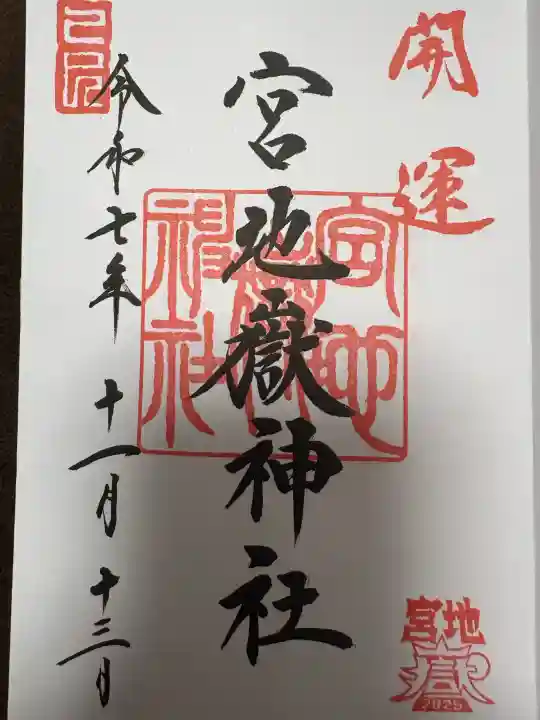 開運
宮地嶽神社
宮地嶽神社
令和七年十一月十三日
宮地
嶽
2025